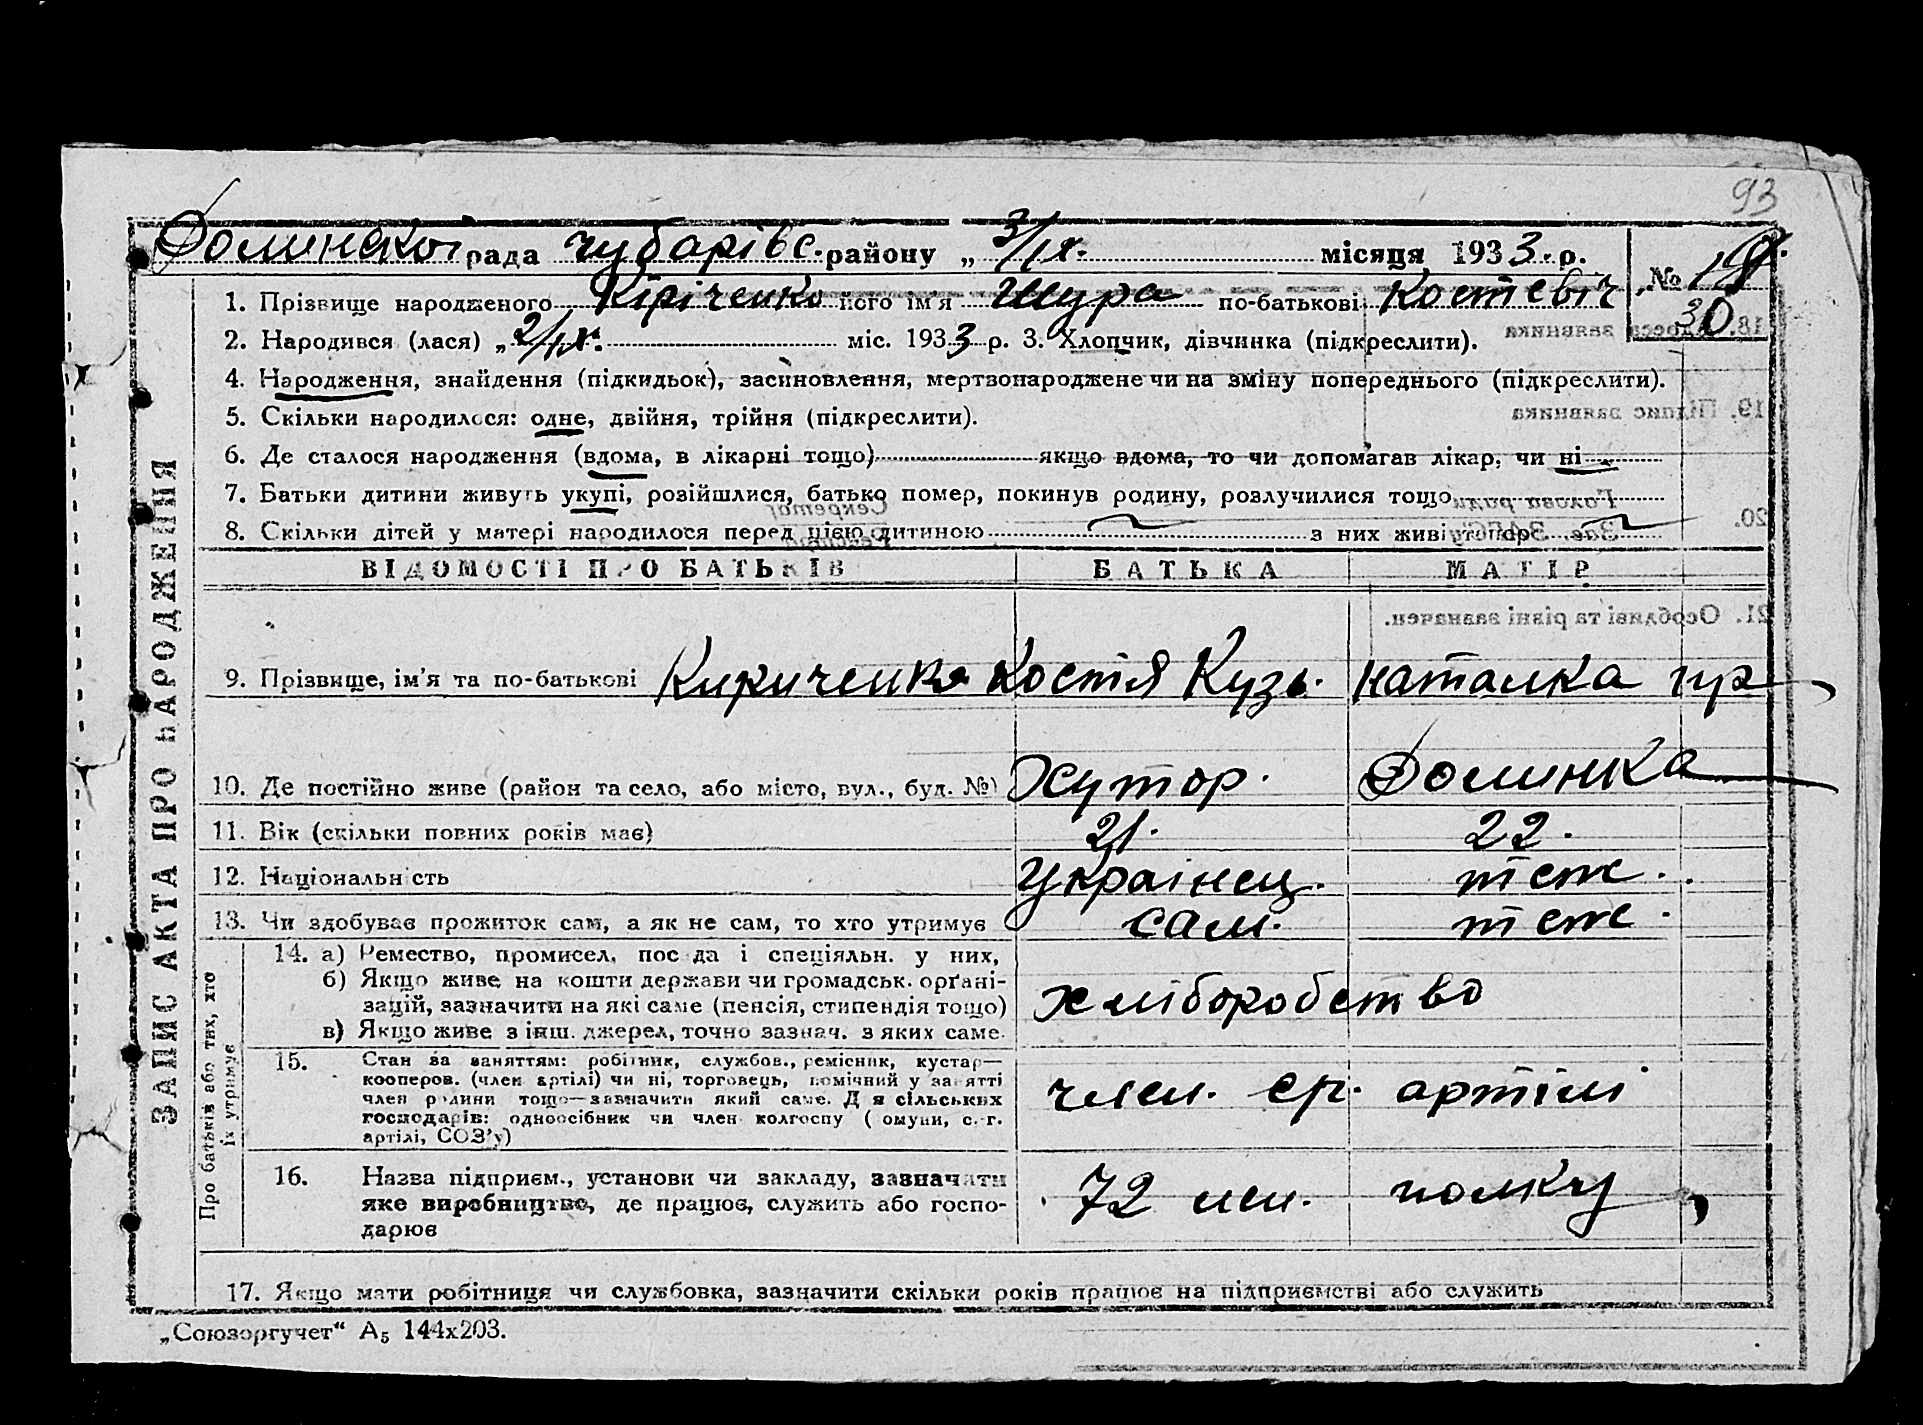 93
Долинської рада Чубарівс. району „ 3/IX. місяця 1933 р. № 19.
30
1. Прізвище народженого Кіріченко його ім'я Шура по-батькові Костевіч
2. Народився (лася) „ 2/IX. міс. 1933 р. 3. Хлопчик, дівчинка (підкреслити).
4. Народження, знайдення (підкидьок), засиновлення, мертвонароджене чи на зміну попереднього (підкреслити).
5. Скільки народилося: одне, двійня, трійня (підкреслити).
6. Де сталося народження (вдома, в лікарні тощо) якщо вдома, то чи допомагав лікар, чи ні
7. Батьки дитини живуть укупі, розійшлися, батько помер, покинув родину, розлучилися тощо
8. Скільки дітей у матері народилося перед цією дитиною — з них живі —
ЗАПИС АКТА ПРО НАРОДЖЕННЯ
ВІДОМОСТІ ПРО БАТЬКІВ БАТЬКА МАТІР
9. Прізвище, ім'я та по-батькові Кириченко Костя Кузь. Наталка гр
10. Де постійно живе (район та село, або місто, вул., буд. №) Хутор. Долинка
11. Вік (скільки повних років має) 21. 22.
12. Національність Українец. теж.
13. Чи здобуває прожиток сам, а як не сам, то хто утримує сам. теж.
Про батьків або тих, хто їх утримує
14. а) Ремество, промисел, посада і спеціяльн. у них,
б) Якщо живе на кошти держави чи громадськ. орґані-
зацій, зазначити на які саме (пенсія, стипендія тощо) хліборобство
в) Якщо живе з інш. джерел, точно зазнач. з яких саме.
15. Стан за заняттям: робітник, службов., ремісник, кустар—
кооперов. (член артілі) чи ні, торговець, помічний у занятті
член родини тощо—зазначити який саме. Для сільських член. ср. артілі
господарів: одноосібник чи член колгоспу (комуни, с.-г.
артілі, СОЗ'у)
16. Назва підприєм., установи чи закладу, зазначати
яке виробництво, де працює, служить або госпо- 72 мл. полку
дарює
17. Якщо мати робітниця чи службовка, зазначити скільки років працює на підприємстві або служить
„Союзоргучет“ А5 144х203.
18. Адреса заявника
19. Підпис заявника
20. Голова ради
Зав. ЗАГС'у
Секретар
21. Особливі та різні зазначен.